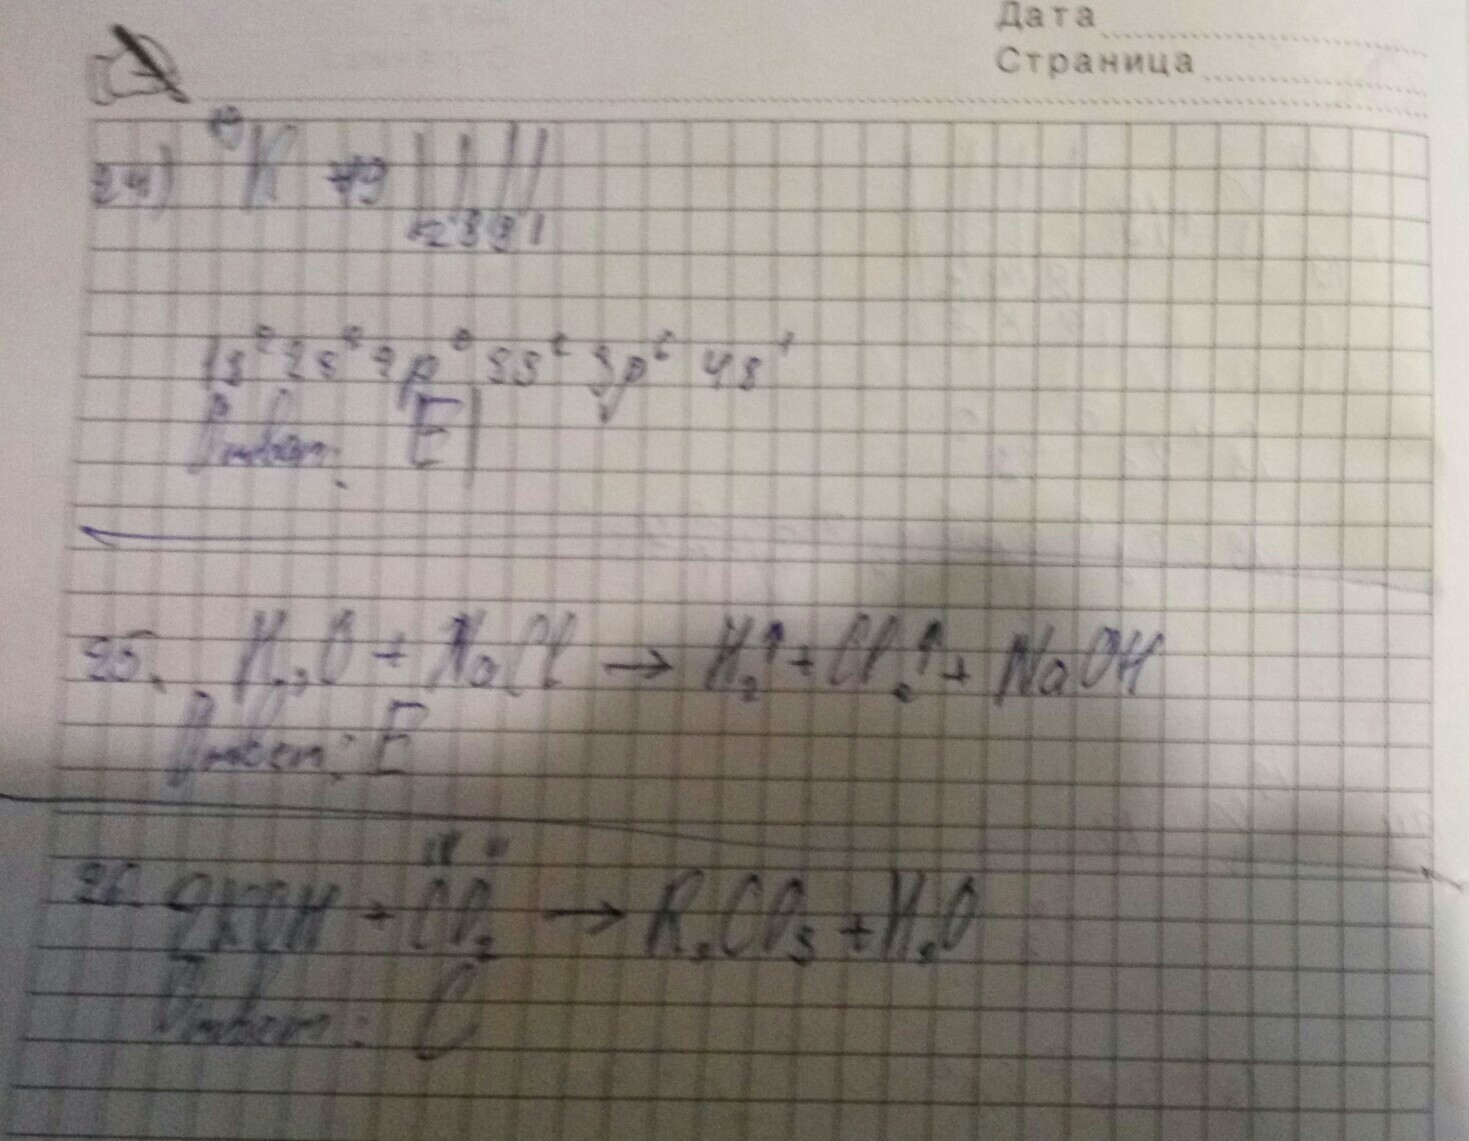 Дата
Страница
24) 19K +19
2 8 8 1
1s² 2s² 2p⁶ 3s² 3p⁶ 4s¹
Ответ: E
25. H₂O + NaCl → H₂↑ + Cl₂↑ + NaOH
Ответ: E
26. 2KOH + CO₂ → K₂CO₃ + H₂O
Ответ: C